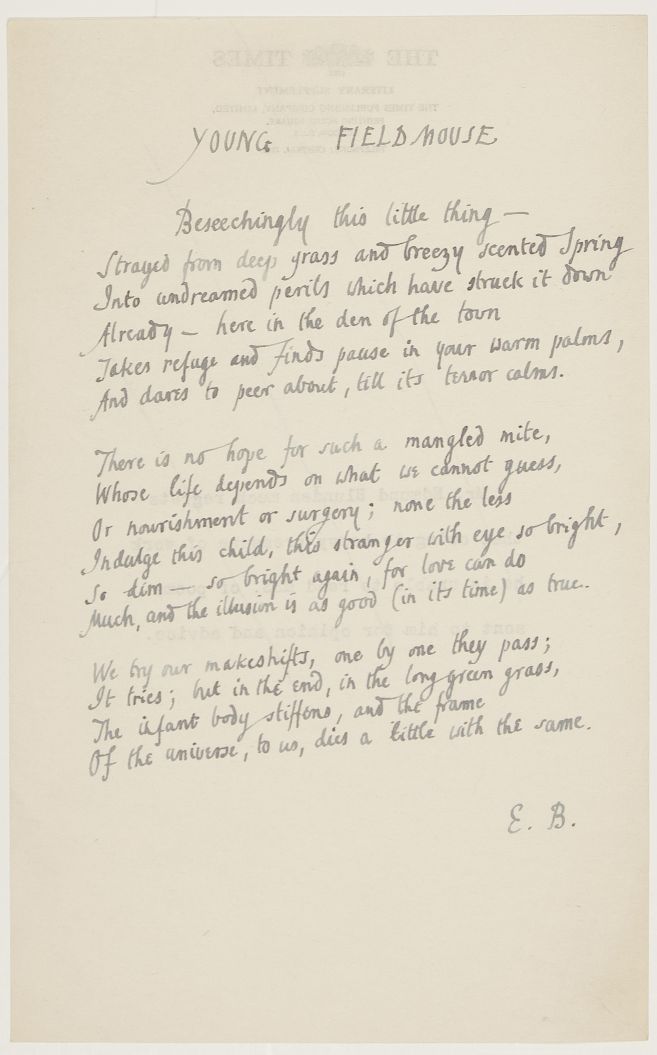 YOUNG FIELDMOUSE
Beseechingly this little thing —
Strayed from deep grass and breezy scented Spring
Into undreamed perils which have struck it down
Already — here in the den of the town
Takes refuge and finds pause in your warm palms,
And dares to peer about, till its terror calms.
There is no hope for such a mangled mite,
Whose life depends on what we cannot guess,
Or nourishment or surgery; none the less
Indulge this child, this stranger with eye so bright,
So dim — so bright again, for love can do
Much, and the illusion is as good (in its time) as true.
We try our makeshifts, one by one they pass;
It tries; but in the end, in the long green grass,
The infant body stiffens, and the frame
Of the universe, to us, dies a little with the same.
E. B.